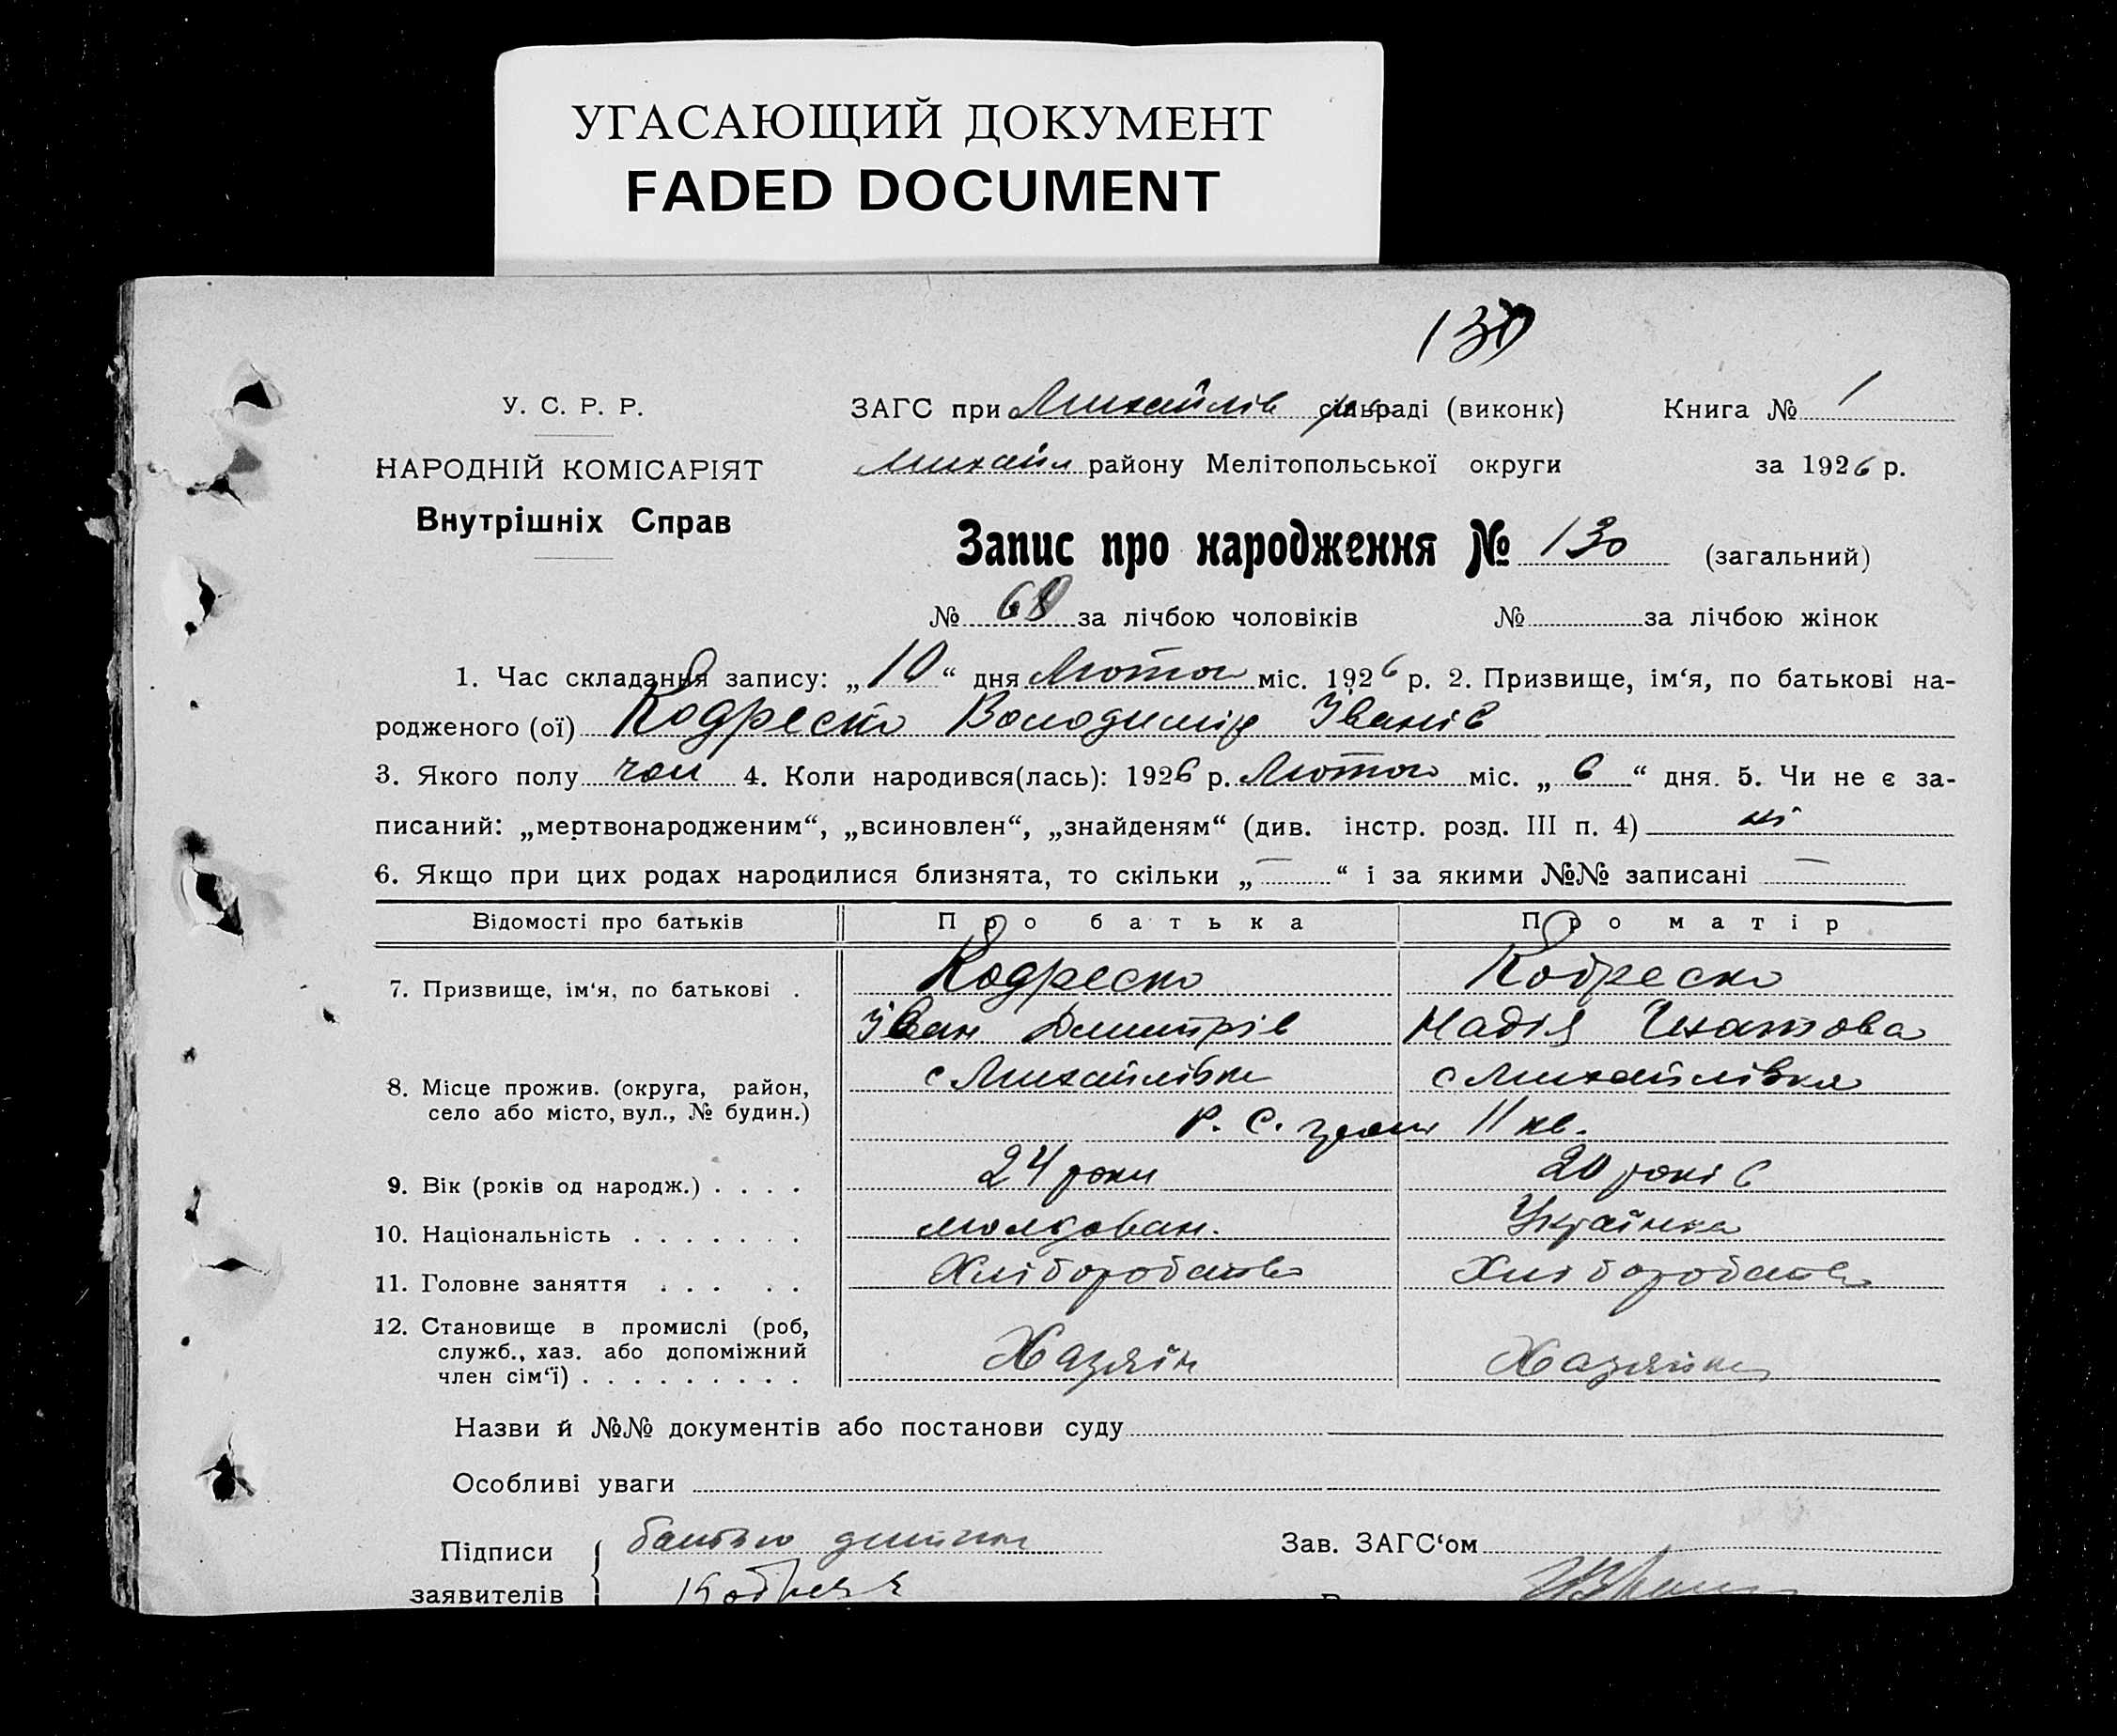 УГАСАЮЩИЙ ДОКУМЕНТ
FADED DOCUMENT
130
У. С. Р. Р.
ЗАГС при Михайлів сільраді (виконк)
Книга № 1
НАРОДНІЙ КОМІСАРІЯТ
Михайл району Мелітопольської округи
за 1926 р.
Внутрішніх Справ
Запис про народження № 130 (загальний)
№ 68 за лічбою чоловіків № за лічбою жінок
1. Час складання запису: „10“ дня Лютого міс. 1926 р. 2. Призвище, ім‘я, по батькові на-
родженого (ої) Кодреско Володимір Іванів
3. Якого полу чол 4. Коли народився(лась): 1926 р. Лютого міс. „6“ дня. 5. Чи не є за-
писаний: „мертвонародженим“, „всиновлен“, „знайденям“ (див. інстр. розд. III п. 4) ні
6. Якщо при цих родах народилися близнята, то скільки „—“ і за якими №№ записані —
Відомості про батьків Про батька Про матір
7. Призвище, ім‘я, по батькові . Кодреско Кодреско
Іван Дмитрів Надія Ігнатова
8. Місце прожив. (округа, район, с Михайлівка с Михайлівка
село або місто, вул., № будин.) Р. С. 11 кв.
9. Вік (років од народж.) . . . . 24 роки 20 років
10. Національність . . . . . . . молдован. Українка
11. Головне заняття . . . . . Хліборобство Хліборобство
12. Становище в промислі (роб,
служб., хаз. або допоміжний Хазяїн Хазяйка
член сім‘ї) . . . . . . . . .
Назви й №№ документів або постанови суду
Особливі уваги
Підписи батько дитини Зав. ЗАГС‘ом
заявителів